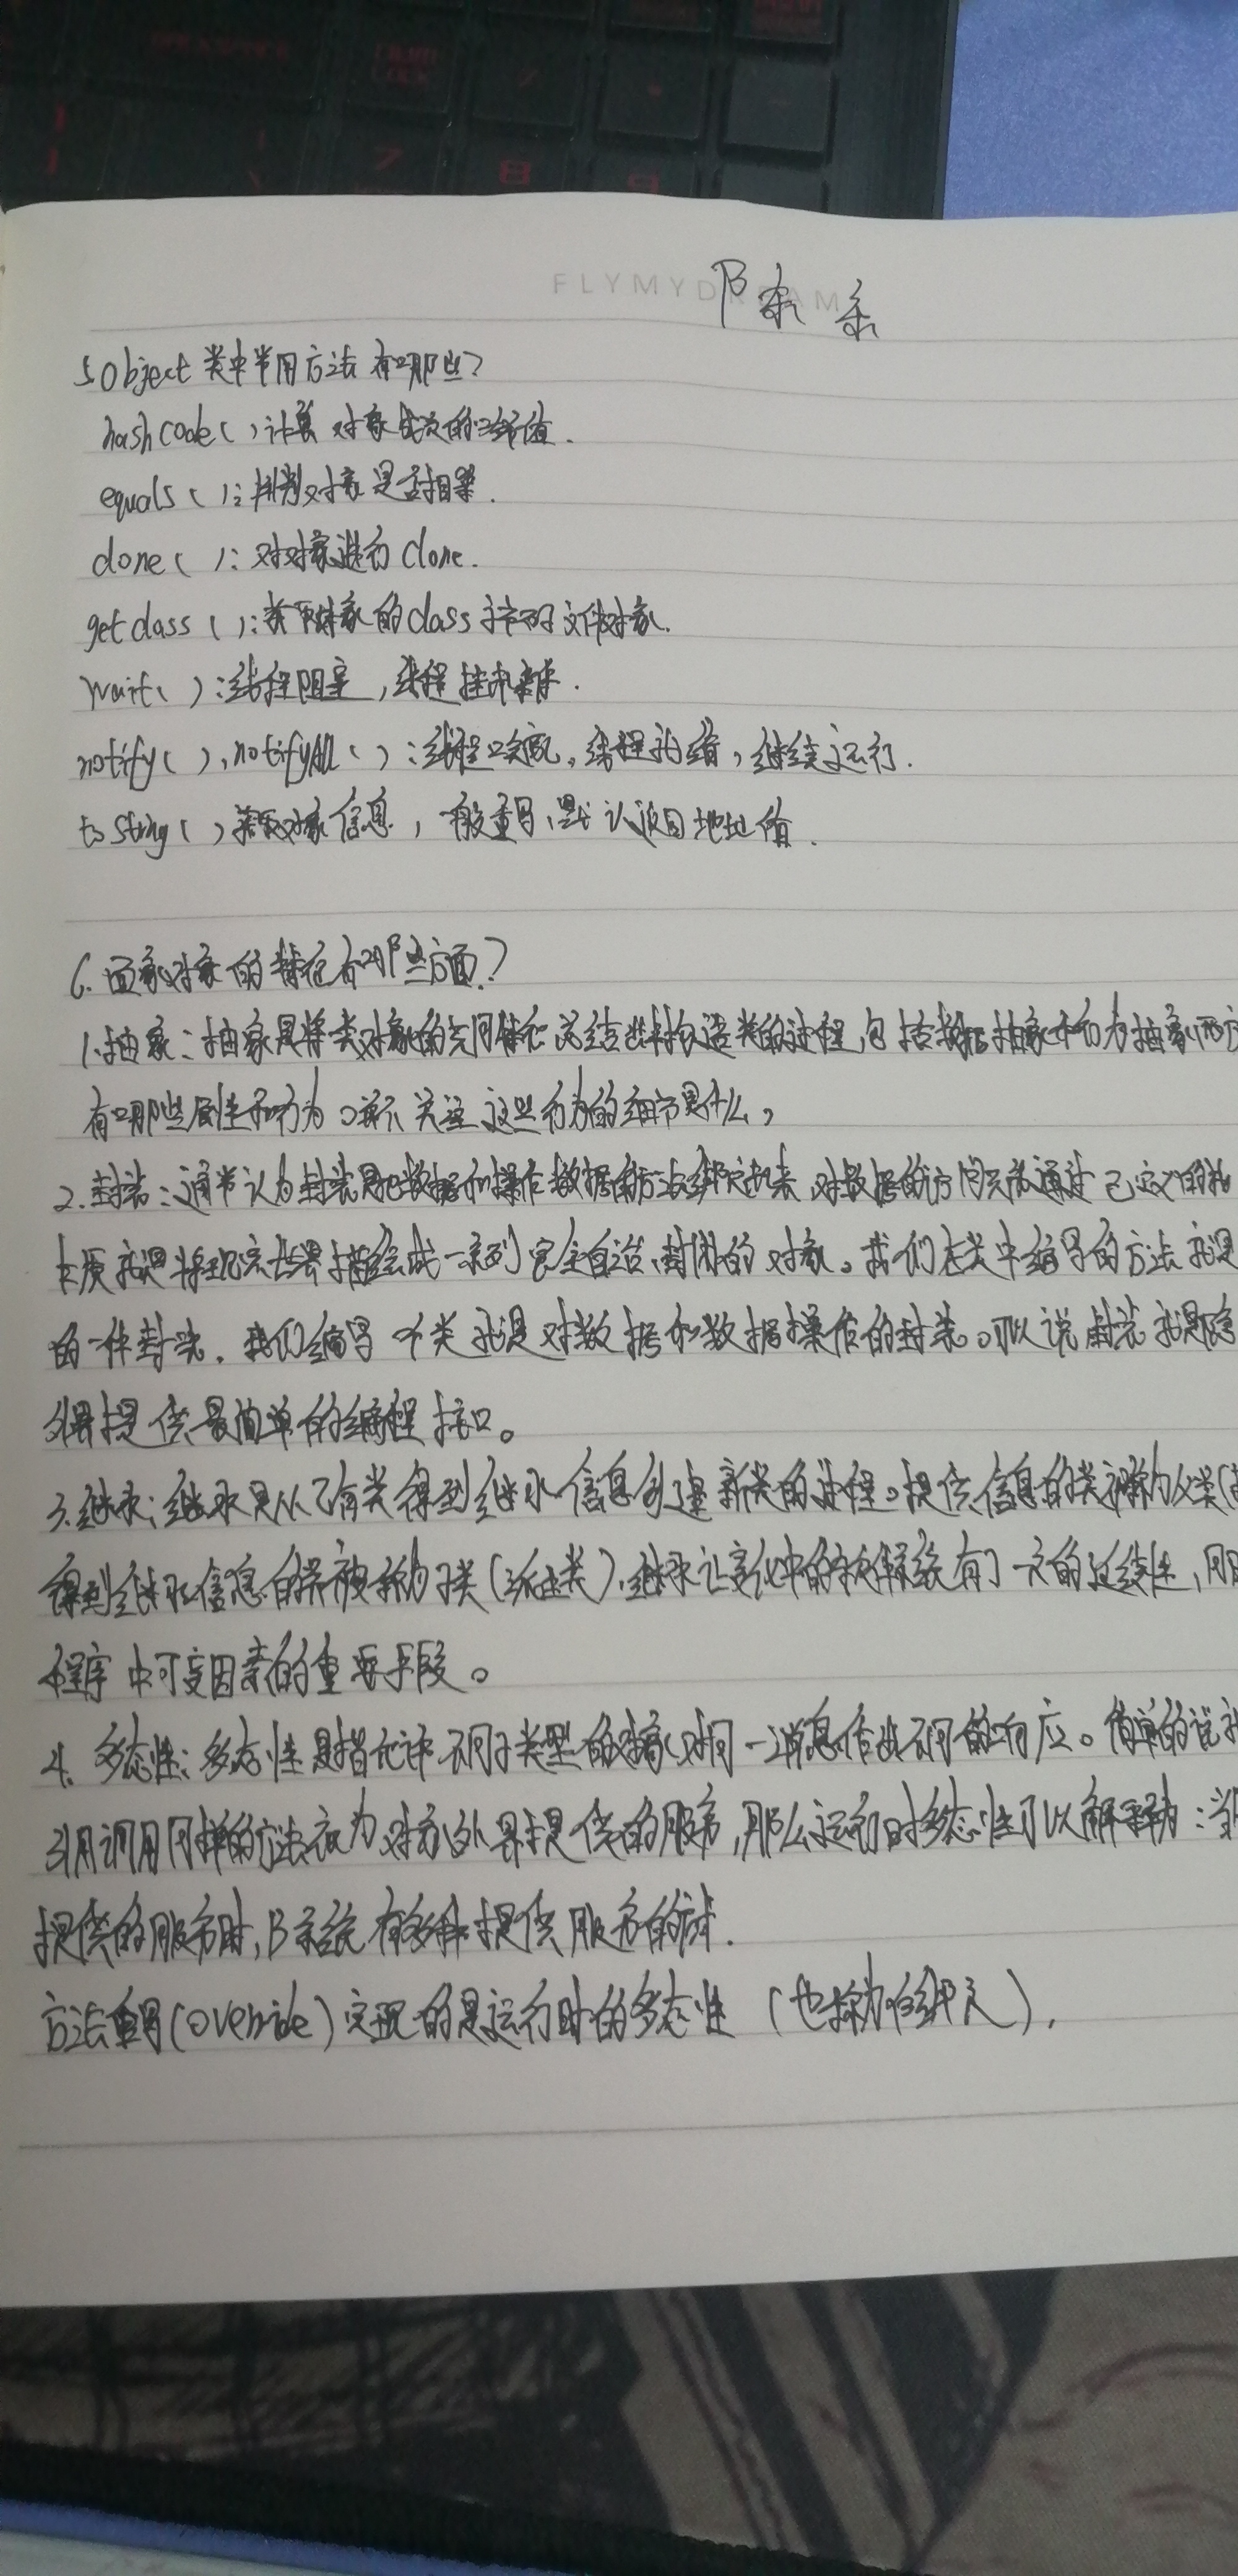 7 8 9
FLYMYDREAM
5.Object 类中常用方法有哪些?
hashcode( )计算对象成员的哈希值.
equals( ):判断对象是否相等.
clone( ):对对象进行clone.
getclass( ):获取对象的class字节码文件对象.
wait( ):线程阻塞,线程挂
notify( ),notifyAll( ):线程唤醒,线程就绪,继续运行.
toString( )获取对象信息,一般重写,默认返回地址值.
6.面象对象的特征有哪些方面?
1.抽象:抽象是将类对象的共同特征总结出来构造类的过程,包括数据抽象和行为抽象两方
有哪些属性和行为,并不关注这些行为的细节是什么,
2.封装:通常认为封装是把数据和操作数据的方法绑定起来,对数据的访问只能通过已定义的接
本质就是将现实世界描绘成一系列完全自治、封闭的对象。我们在类中编写的方法就是
的一种封装.我们编写一个类就是对数据和数据操作的封装。可以说封装就是隐
外界提供最简单的编程接口。
3.继承:继承是从已有类得到继承信息创建新类的过程。提供信息的类被称为父类(
得到继承信息的类被称为子类(派生类).继承让变化中的软件系统有了一定的延续性,同
程序中可变因素的重要手段。
4.多态性:多态性是指允许不同子类型的对象对同一消息作出不同的响应。简单的说就
引用调用同样的方法 为对象外界提供的服务,那么运行时多态性可以解释为:当
提供的服务时,B系统有多种提供服务的方式.
方法重写(override)实现的是运行时的多态性(也称为后绑定).